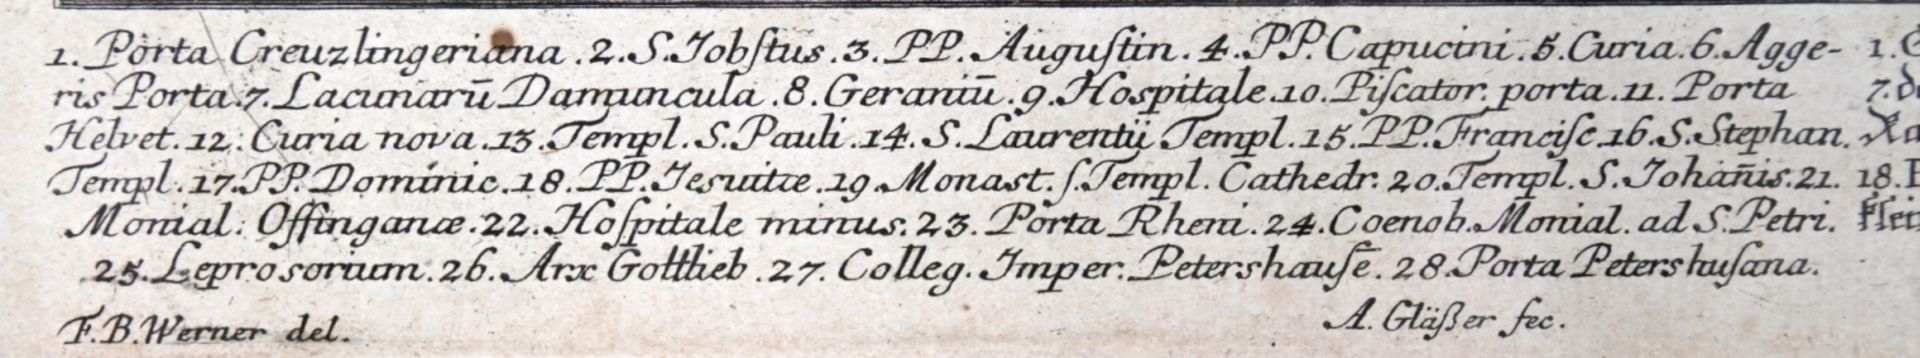 1. Porta Creuzlingeriana .2. S. Jobſtus .3. PP. Auguſtin. 4. PP. Capucini .5. Curia. 6. Agge- 1.
ris Porta. 7. Lacunarū Damuncula .8. Geraniū .9. Hospitale .10. Piſcator. porta .11. Porta 7.
Helvet. 12. Curia nova .13. Templ. S. Pauli .14. S. Laurentii Templ. 15. PP. Franciſc. 16. S. Stephan.
Templ. 17. PP. Dominic. 18. PP. Jesuitæ .19. Monast. ſ. Templ. Cathedr. 20. Templ. S. Johan̄is. 21. 18.
Monial. Offinganæ. 22. Hoſpitale minus. 23. Porta Rheni. 24. Coenob. Monial. ad S. Petri.
25. Leprosorium. 26. Arx Gottlieb .27. Colleg. Imper. Petershauſē. 28. Porta Petershuſana.
F. B. Werner del. A. Gläßer fec.